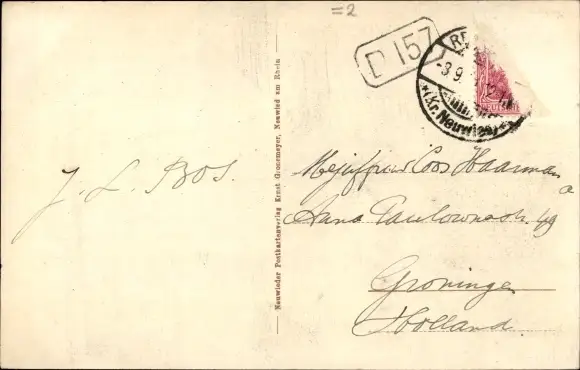 =2
D 157
RE
-3.9.
12
*(Kr. Neuwied)*
J. L. Bos.
Neuwieder Postkartenverlag Ernst Gussermeyer, Neuwied am Rhein
Mejuffrouw Coos Haarman
a
Anna Paulownastr. 49
Groningen
Holland.